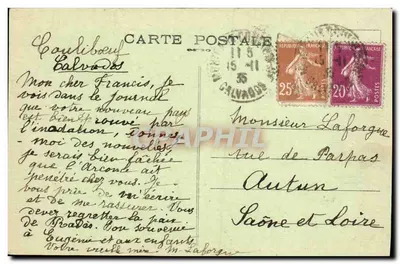 Coulibœuf
Calvados
CARTE POSTALE
Mon cher Francis, Je
vois dans le Journal
que votre nouveau pays
est bien éprouvé par
l'inondation, donnez
moi des nouvelles,
je serais bien fâchée
que l'Arconce ait
pénétré chez vous. Je
vous prie de m'écrire
et de me rassurer. Vous
devez regretter la paix
de . Bon souvenir
à Eugénie et aux enfants
Votre vieille mère M. Laforgue
15 -11
35
CALVADOS
25c
20c
POSTES
Monsieur Laforgue
rue de Parpas
Autun
Saône et Loire
DELPHIL